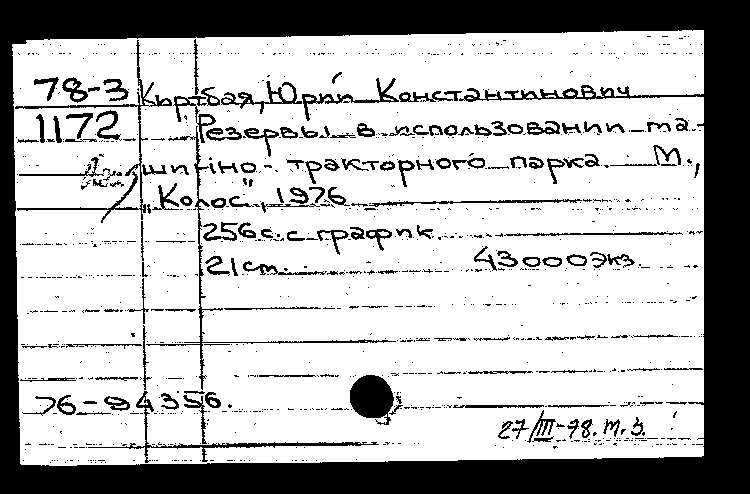 78-3 Киртбая, Юрий Константинович
1172 Резервы в использовании ма-
шинно-тракторного парка. М.,
„Колос", 1976
256 с. с график.
21 см. 43000 экз.
76-94356.
27/III-78. М.З.